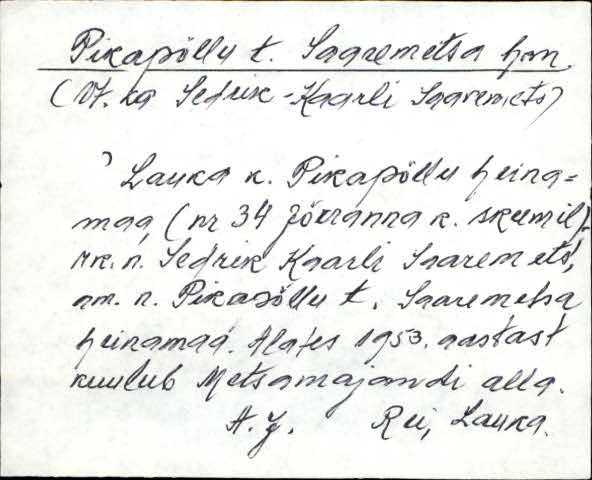 Pikapõllu t. Saaremetsa hm.
(Vt. ka Sedrik-Kaarli Saaremets)
Lauka k. Pikapõllu heina=
maa, (nr 34 Jõeranna k. skeemil)-
rk. n. Sedrik Kaarli Saaremets,
am. n. Pikapõllu t. Saaremetsa
heinamaa. Alates 1953. aastast
kuulub Metsamajandi alla.
A. J. Rei, Lauka.